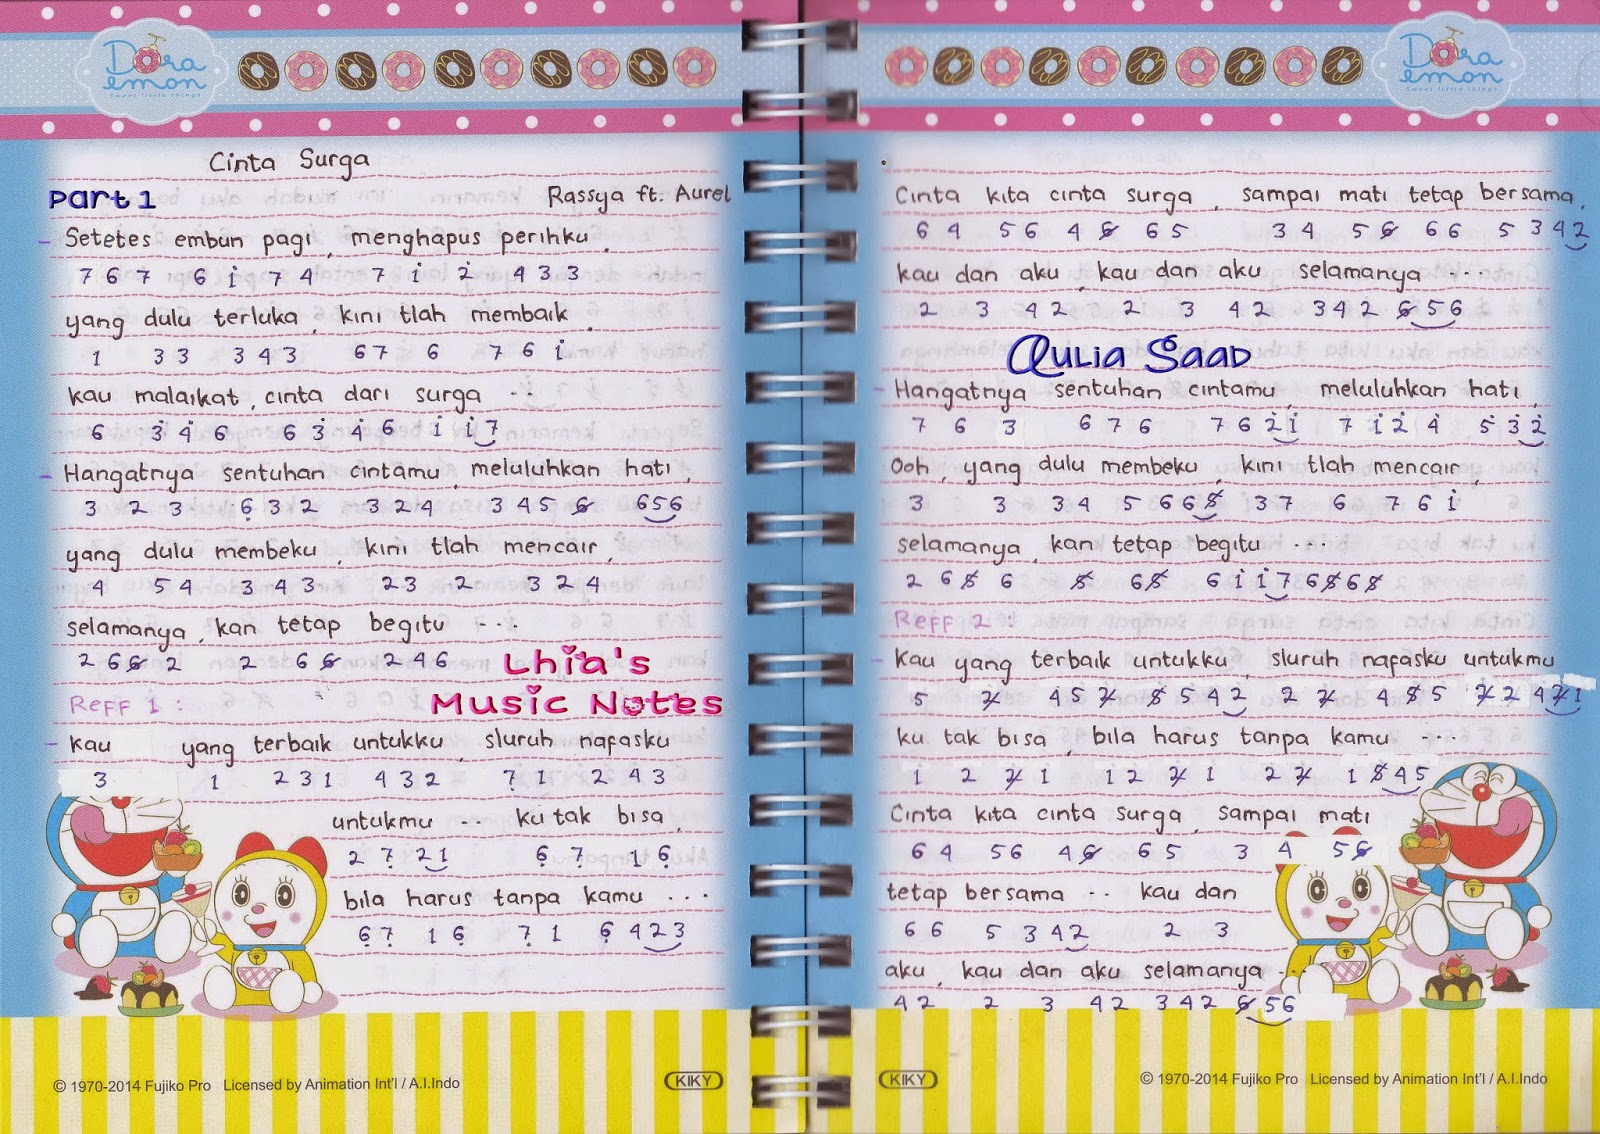 Dora
emon
Sweet little things
Cinta Surga
Part 1
Rassya ft. Aurel
- Setetes embun pagi, menghapus perihku,
7 6 7 6 i 7 4 7 i 2̇ 4 3 3
yang dulu terluka, kini tlah membaik,
1 3 3 3 4 3 6 7 6 7 6 i
kau malaikat, cinta dari surga ..
6 3̇ 4̇ 6 6 3̇ 4̇ 6 i i 7
- Hangatnya sentuhan cintamu, meluluhkan hati,
3 2 3 6̣ 3 2 3 2 4 3 4 5 6̸ 6 5 6
yang dulu membeku, kini tlah mencair,
4 5 4 3 4 3 2 3 2 3 2 4
selamanya, kan tetap begitu ...
2 6 6̸ 2 2 6 6̸ 2 4 6
Lhia's
Music Notes
Reff 1 :
- kau yang terbaik untukku, sluruh nafasku
3 1 2 3 1 4 3 2 7̣ 1 2 4 3
untukmu ... ku tak bisa,
2 7̣ 2 1 6̣ 7̣ 1 6̣
bila harus tanpa kamu ...
6̣ 7̣ 1 6̣ 7̣ 1 6̣ 4 2 3
© 1970-2014 Fujiko Pro Licensed by Animation Int'l / A.I.Indo
KIKY
Dora
emon
Sweet little things
Cinta kita cinta surga, sampai mati tetap bersama,
6 4 5 6 4 6̸ 6 5 3 4 5 6̸ 6 6 5 3 4 2
kau dan aku, kau dan aku selamanya ...
2 3 4 2 2 3 4 2 3 4 2 6̸ 5 6
Aulia Saad
- Hangatnya sentuhan cintamu, meluluhkan hati,
7 6 3 6 7 6 7 6 2̇ i 7 i 2̇ 4̇ 5̇ 3̇ 2̇
Ooh, yang dulu membeku, kini tlah mencair,
3 3 3 4 5 6 6 5̸ 3 7 6 7 6 i
selamanya, kan tetap begitu ...
2 6 5̸ 6 5̸ 6 5̸ 6 i i 7 6 5̸ 6 5̸
Reff 2 :
- kau yang terbaik untukku, sluruh nafasku untukmu
5 2̸ 4 5 2̸ 5̸ 5 4 2 2 2̸ 4 5̸ 5 2̸ 2 4 2̸ 1
ku tak bisa, bila harus tanpa kamu ...
1 2 2̸ 1 1 2 2̸ 1 2 2̸ 1 5̸ 4 5
Cinta kita cinta surga, sampai mati
6 4 5 6 4 6̸ 6 5 3 4 5 6̸
tetap bersama .. kau dan
6 6 5 3 4 2 2 3
aku, kau dan aku selamanya ...
4 2 2 3 4 2 3 4 2 6̸ 5 6
KIKY
© 1970-2014 Fujiko Pro Licensed by Animation Int'l / A.I.Indo